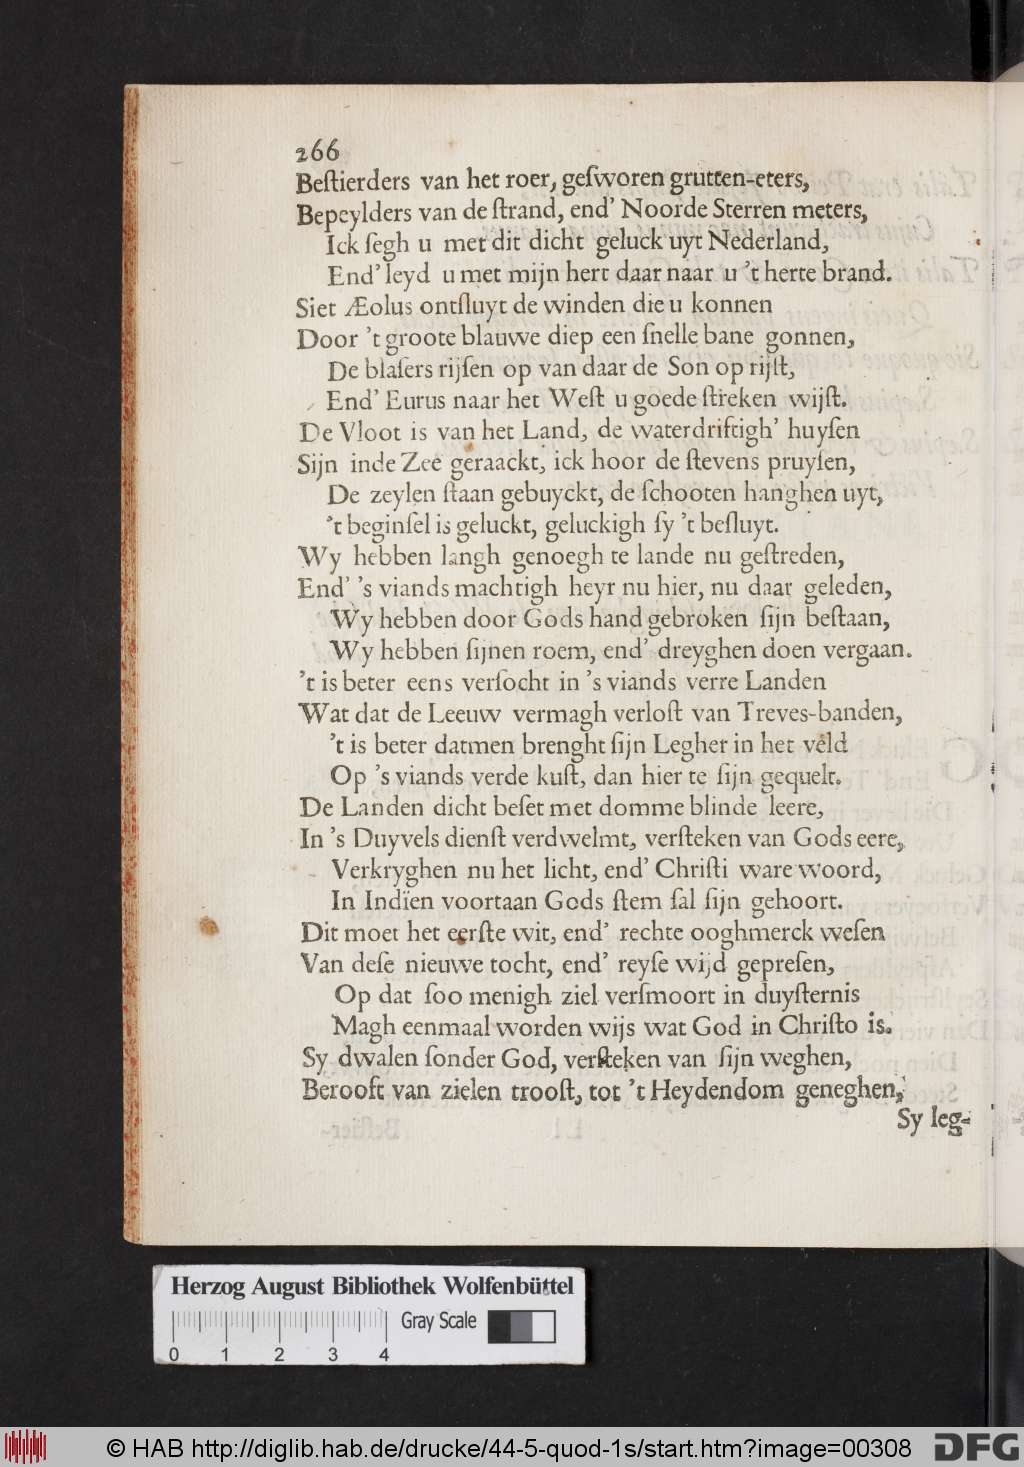 266
Beſtierders van het roer, geſworen grutten-eters,
Bepeylders van de ſtrand, end' Noorde Sterren meters,
Ick ſegh u met dit dicht geluck uyt Nederland,
End' leyd u met mijn hert daar naar u 't herte brand.
Siet Æolus ontſluyt de winden die u konnen
Door 't groote blauwe diep een ſnelle bane gonnen,
De blaſers rijſen op van daar de Son op rijſt,
End' Eurus naar het Weſt u goede ſtreken wijſt.
De Vloot is van het Land, de waterdriftigh' huyſen
Sijn inde Zee geraackt, ick hoor de ſtevens pruyſen,
De zeylen ſtaan gebuyckt, de ſchooten hanghen uyt,
't beginſel is geluckt, geluckigh ſy 't beſluyt.
Wy hebben langh genoegh te lande nu geſtreden,
End' 's viands machtigh heyr nu hier, nu daar geleden,
Wy hebben door Gods hand gebroken ſijn beſtaan,
Wy hebben ſijnen roem, end' dreyghen doen vergaan.
't is beter eens verſocht in 's viands verre Landen
Wat dat de Leeuw vermagh verloſt van Treves-banden,
't is beter datmen brenght ſijn Legher in het veld
Op 's viands verde kuſt, dan hier te ſijn gequelt.
De Landen dicht beſet met domme blinde leere,
In 's Duyvels dienſt verdwelmt, verſteken van Gods eere,
Verkryghen nu het licht, end' Chriſti ware woord,
In Indïen voortaan Gods ſtem ſal ſijn gehoort.
Dit moet het eerſte wit, end' rechte ooghmerck weſen
Van deſe nieuwe tocht, end' reyſe wijd gepreſen,
Op dat ſoo menigh ziel verſmoort in duyſternis
Magh eenmaal worden wijs wat God in Chriſto is.
Sy dwalen ſonder God, verſteken van ſijn weghen,
Berooft van zielen trooſt, tot 't Heydendom geneghen,
Sy leg-
Herzog August Bibliothek Wolfenbüttel
Gray Scale
0 1 2 3 4
© HAB http://diglib.hab.de/drucke/44-5-quod-1s/start.htm?image=00308
DFG